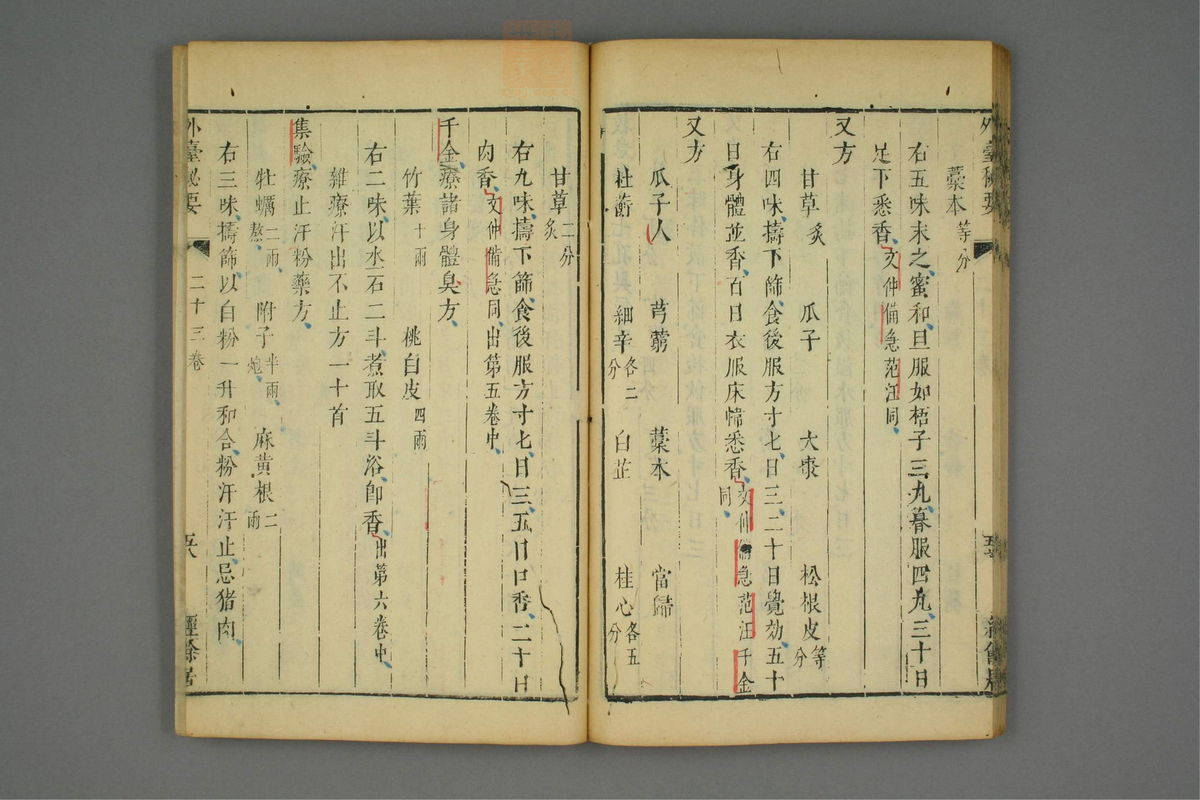 藁本等分
右五味末之蜜和旦服如梧子三丸暮服四丸三十日
足下悉香文仲備急范汪同
又方
甘草炙 瓜子 大棗 松根皮等分
右四味擣下篩食後服方寸匕日三二十日覺効五十
日身體並香百日衣服床幃悉香文仲備急范汪千金同
又方
瓜子人 芎藭 藁本 當歸
杜蘅 細辛各二分 白芷 桂心各五分
甘草二分炙
右九味擣下篩食後服方寸匕日三五日口香二十日
肉香文仲備急同出第五卷中
千金療諸身體臭方
竹葉十兩 桃白皮四兩
右二味以水一石二斗煮取五斗浴卽香出第六卷中
雜療汗出不止方一十首
集驗療止汗粉藥方
牡蠣二兩熬 附子半兩炮 麻黄根二兩
右三味擣篩以白粉一升和合粉汗汗止忌猪肉
外臺秘要 二十三卷 五六 經餘居